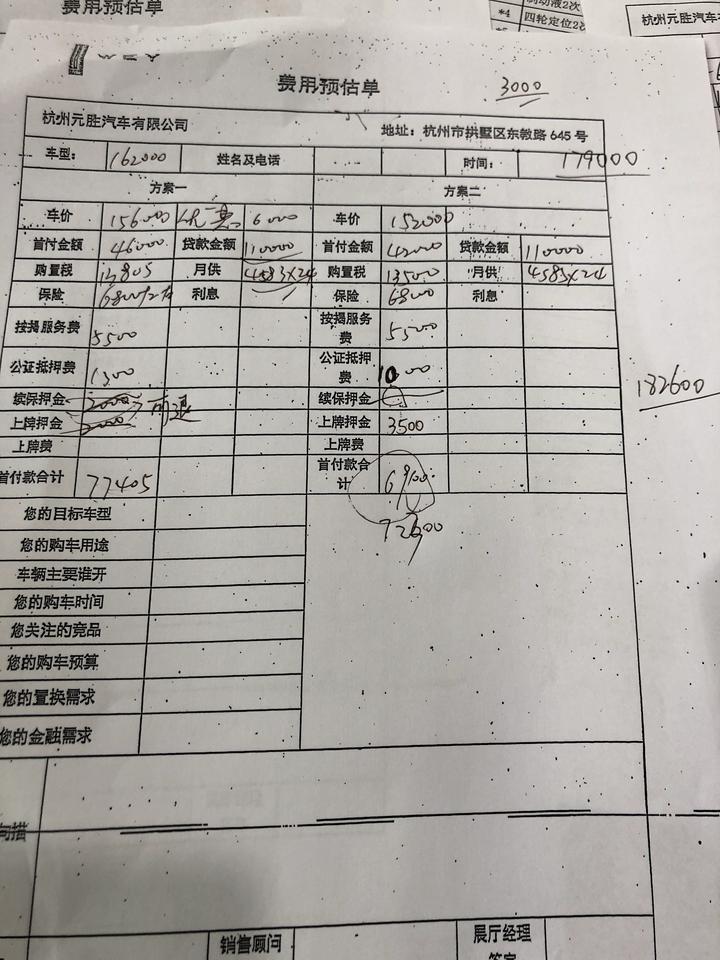 费用预估单
制动液2次
*4 四轮定位2次
杭州元胜汽车
费用预估单
3000
杭州元胜汽车有限公司 地址:杭州市拱墅区东教路 645 号
车型: 162000 姓名及电话 时间: 179000
方案一 方案二
车价 156000 6000 车价 152000
首付金额 46000 贷款金额 110000 首付金额 42000 贷款金额 110000
购置税 13805 月供 4583×24 购置税 13500 月供 4583×24
保险 6800 利息 保险 6800 利息
按揭服务费 5500 按揭服务费 5500
公证抵押费 1300 公证抵押费 1000
续保押金 2000 可退 续保押金
182600
上牌押金 2000 上牌押金 3500
上牌费 上牌费
首付款合计 77405 首付款合计 69100
72600
您的目标车型
您的购车用途
车辆主要谁开
您的购车时间
您关注的竞品
您的购车预算
您的置换需求
您的金融需求
销售顾问 展厅经理